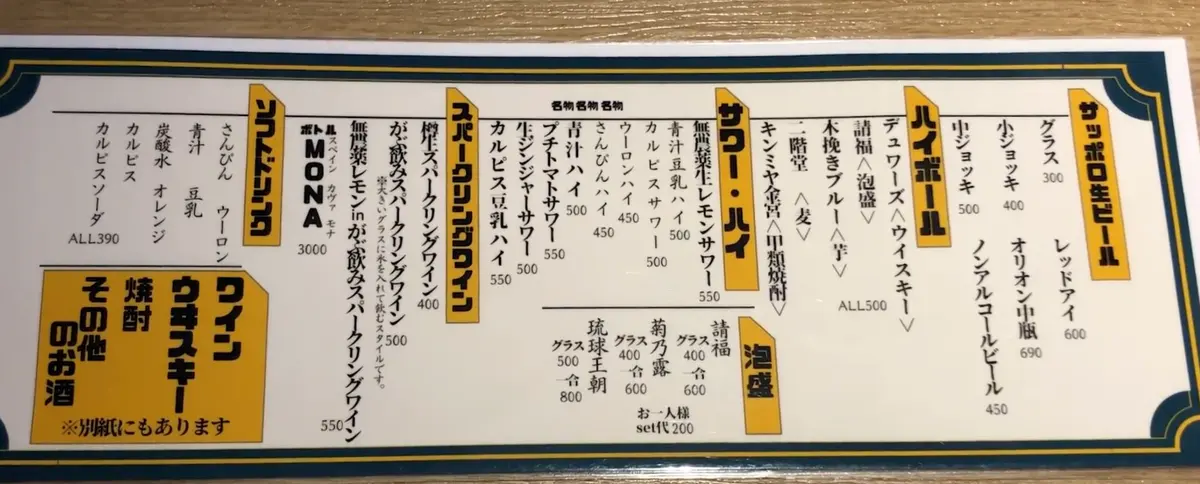 サッポロ生ビール
グラス 300
小ジョッキ 400
中ジョッキ 500
レッドアイ 600
オリオン中瓶 690
ノンアルコールビール 450
ハイボール
デュワーズ〈ウイスキー〉
請福〈泡盛〉
木挽きブルー〈芋〉
二階堂〈麦〉
キンミヤ金宮〈甲類焼酎〉
ALL500
サワー・ハイ
無農薬生レモンサワー 550
青汁豆乳ハイ 500
カルピスサワー 500
ウーロンハイ 450
さんぴんハイ 450
名物 青汁ハイ 500
名物 プチトマトサワー 550
名物 生ジンジャーサワー 500
カルピス豆乳ハイ 550
泡盛
請福
グラス 400
一合 600
菊乃露
グラス 400
一合 600
琉球王朝
グラス 500
一合 800
お一人様
set代200
スパークリングワイン
樽生スパークリングワイン 400
がぶ飲みスパークリングワイン 500
※大きいグラスに氷を入れて飲むスタイルです。
無農薬レモンinがぶ飲みスパークリングワイン 550
ボトル MONA 3000
スペイン カヴァ モナ
ソフトドリンク
さんぴん ウーロン
青汁 豆乳
炭酸水 オレンジ
カルピス
カルピスソーダ
ALL390
ワイン
ウヰスキー
焼酎
その他
のお酒
※別紙にもあります